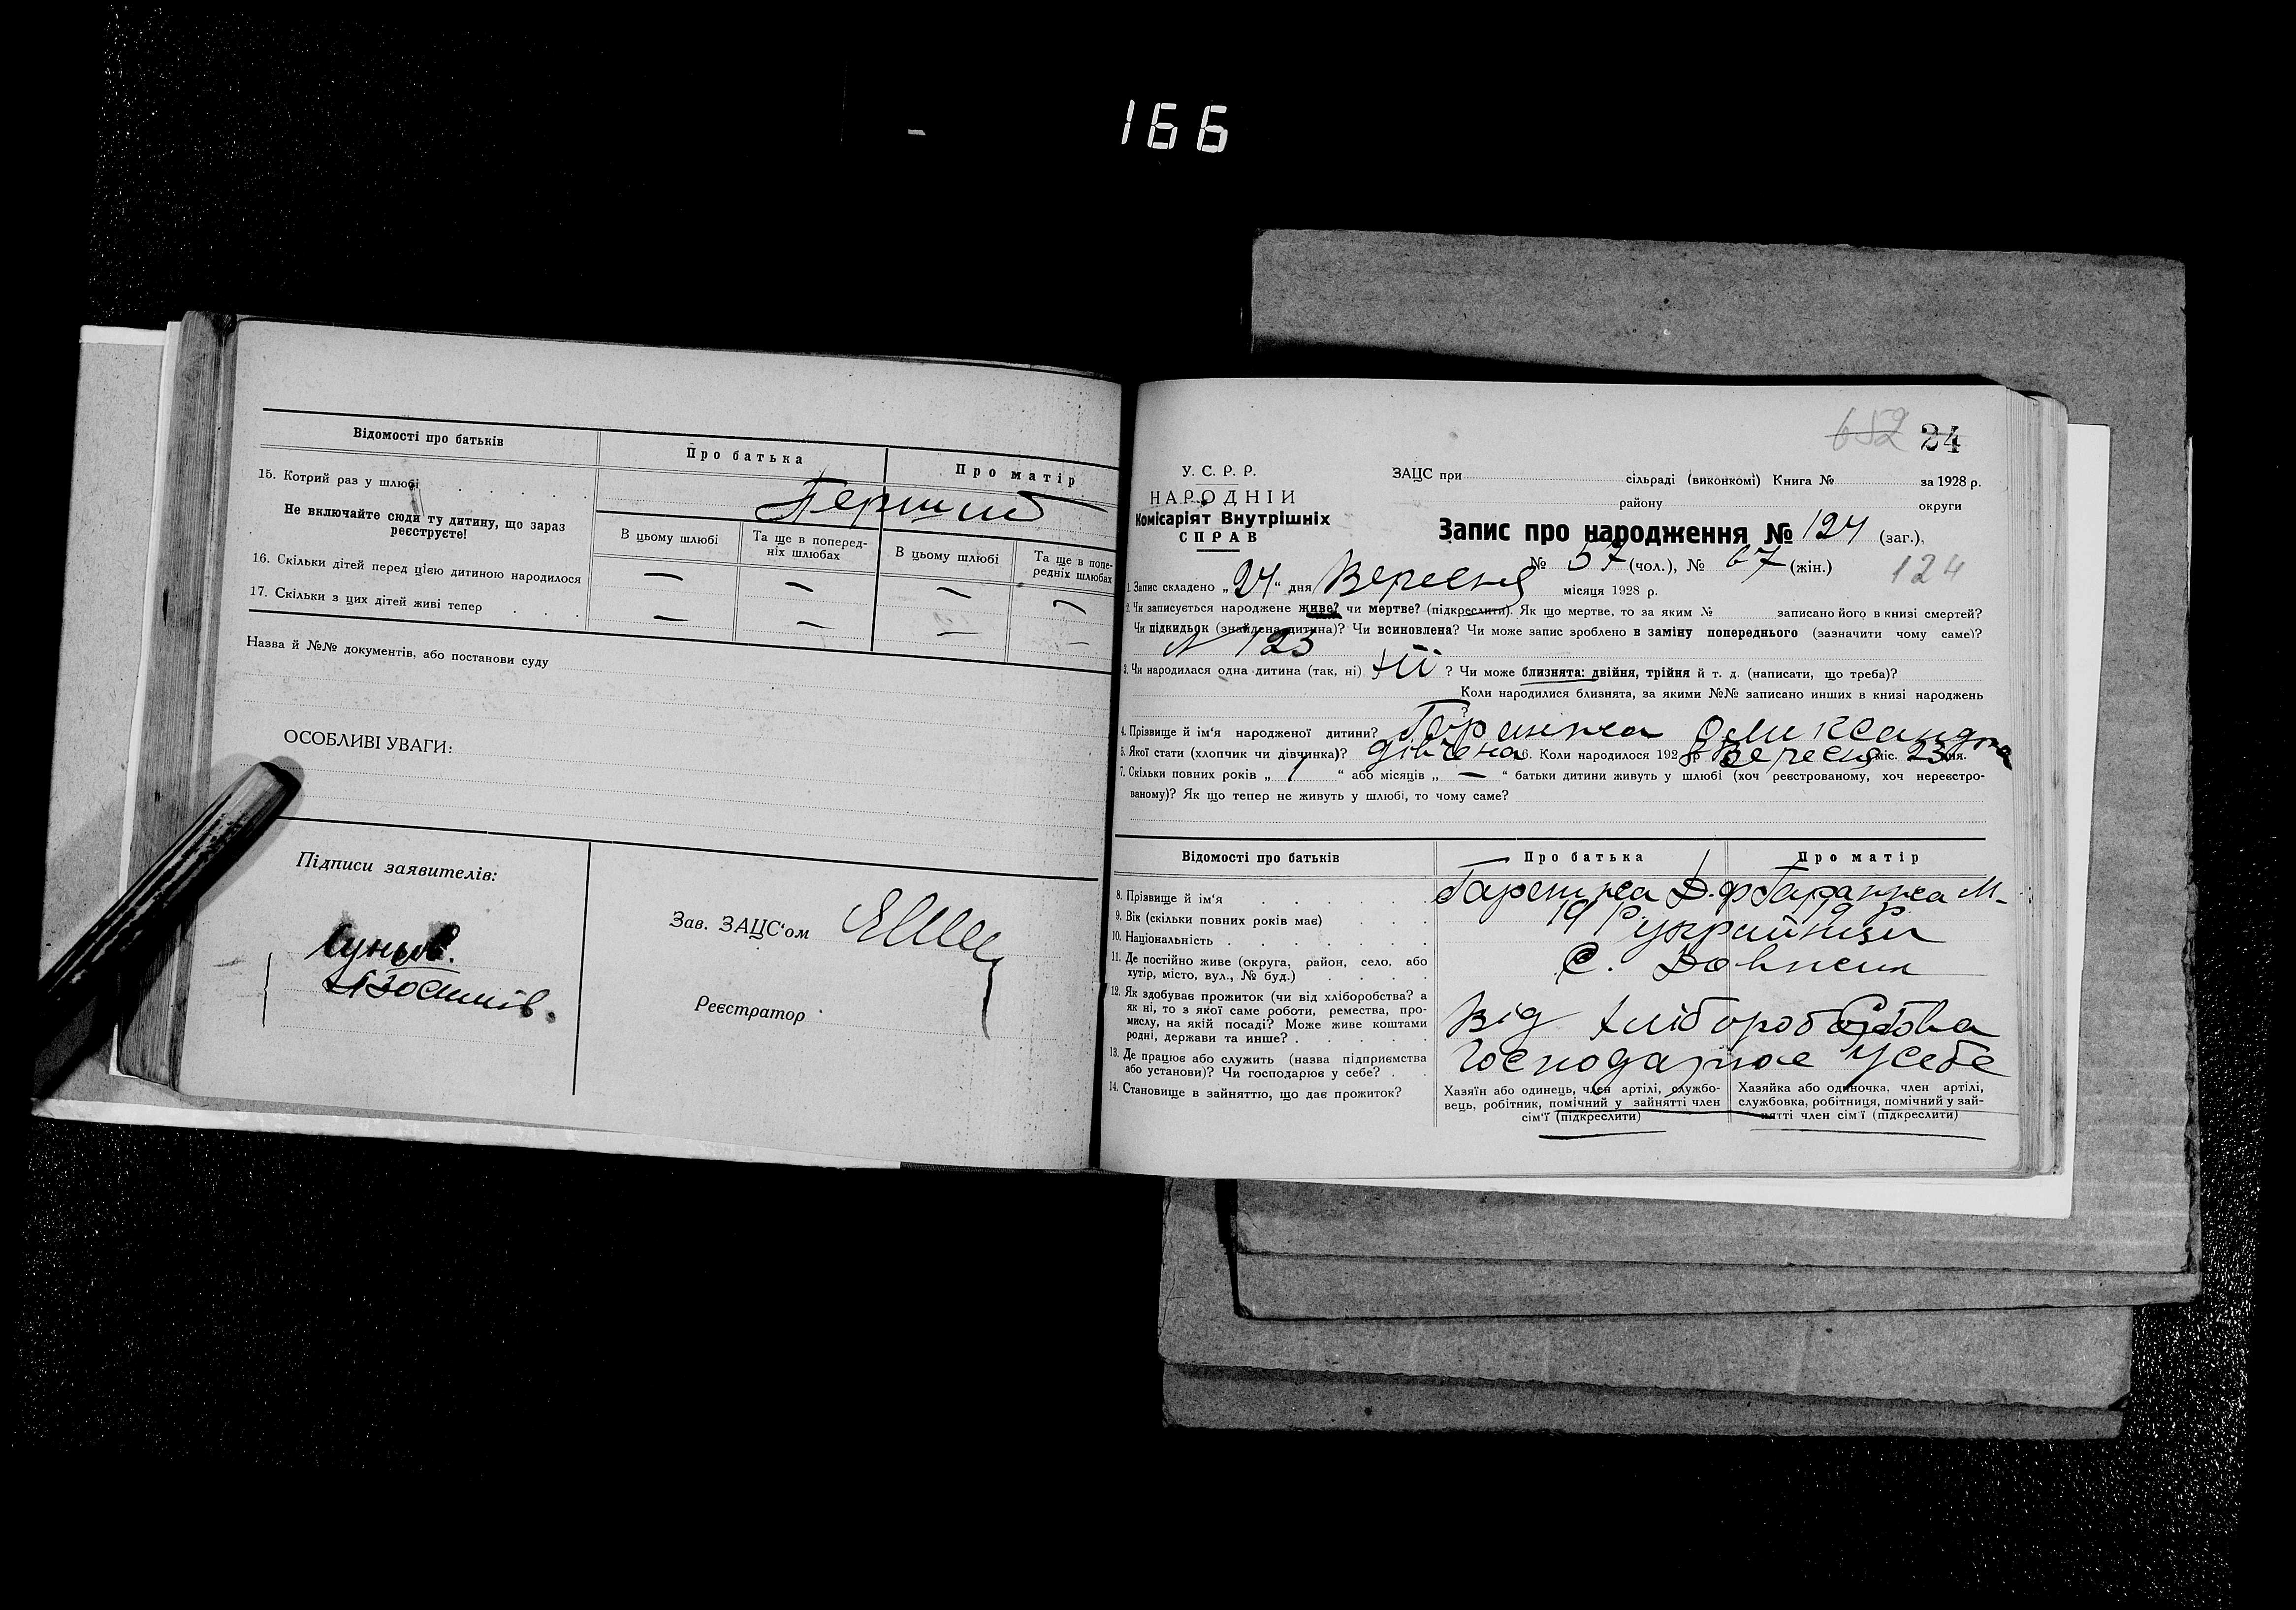 166
Відомості про батьків
Про батька
Про матір
15. Котрий раз у шлюбі
Перший
Не включайте сюди ту дитину, що зараз реєструєте!
В цьому шлюбі
Та ще в поперед-
ніх шлюбах
В цьому шлюбі
Та ще в попе-
редніх шлюбах
16. Скільки дітей перед цією дитиною народилося — — — —
17. Скільки з цих дітей живі тепер — — — —
Назва й №№ документів, або постанови суду
ОСОБЛИВІ УВАГИ:
Підписи заявителів:
Зав. ЗАЦС'ом
Реєстратор
652 24
У. С. Р. Р.
НАРОДНІЙ
Комісаріят Внутрішніх
СПРАВ
ЗАЦС при сільраді (виконкомі) Книга № за 1928 р.
району округи
Запис про народження № 124 (заг.),
№ 57 (чол.), № 67 (жін.) 124
1. Запис складено „24“ дня Вересня місяця 1928 р.
2. Чи записується народжене живе? чи мертве? (підкреслити). Як що мертве, то за яким № записано його в книзі смертей?
Чи підкидьок (знайдена дитина)? Чи всиновлена? Чи може запис зроблено в заміну попереднього (зазначити чому саме)?
N 123
3. Чи народилася одна дитина (так, ні) ? Чи може близнята: двійня, трійня й т. д. (написати, що треба)?
Коли народилися близнята, за якими №№ записано инших в книзі народжень
?
4. Прізвище й ім'я народженої дитини? Гаранжа Оликсандра
5. Якої стати (хлопчик чи дівчинка)? дівчена 6. Коли народилося 1928 р. Вересня міс. 23 дня.
7. Скільки повних років „ 1 “ або місяців „ — “ батьки дитини живуть у шлюбі (хоч реєстрованому, хоч нереєстро-
ваному)? Як що тепер не живуть у шлюбі, то чому саме?
Відомості про батьків
Про батька
Про матір
8. Прізвище й ім'я Гаранжа Д. Ф. Гаранжа М.
9. Вік (скільки повних років має) 19 19
10. Національність українці
11. Де постійно живе (округа, район, село, або
хутір, місто, вул., № буд.)
С. Довжик
12. Як здобуває прожиток (чи від хліборобства? а
як ні, то з якої саме роботи, ремества, про-
мислу, на якій посаді? Може живе коштами
родні, держави та инше?
Від хлібороб
13. Де працює або служить (назва підприємства
або установи)? Чи господарює у себе?
господарює у себе
14. Становище в зайняттю, що дає прожиток?
Хазяїн або одинець, член артілі, службо-
вець, робітник, помічний у зайнятті член
сім'ї (підкреслити)
Хазяйка або одиночка, член артілі,
службовка, робітниця, помічний у зай-
нятті член сім'ї (підкреслити)